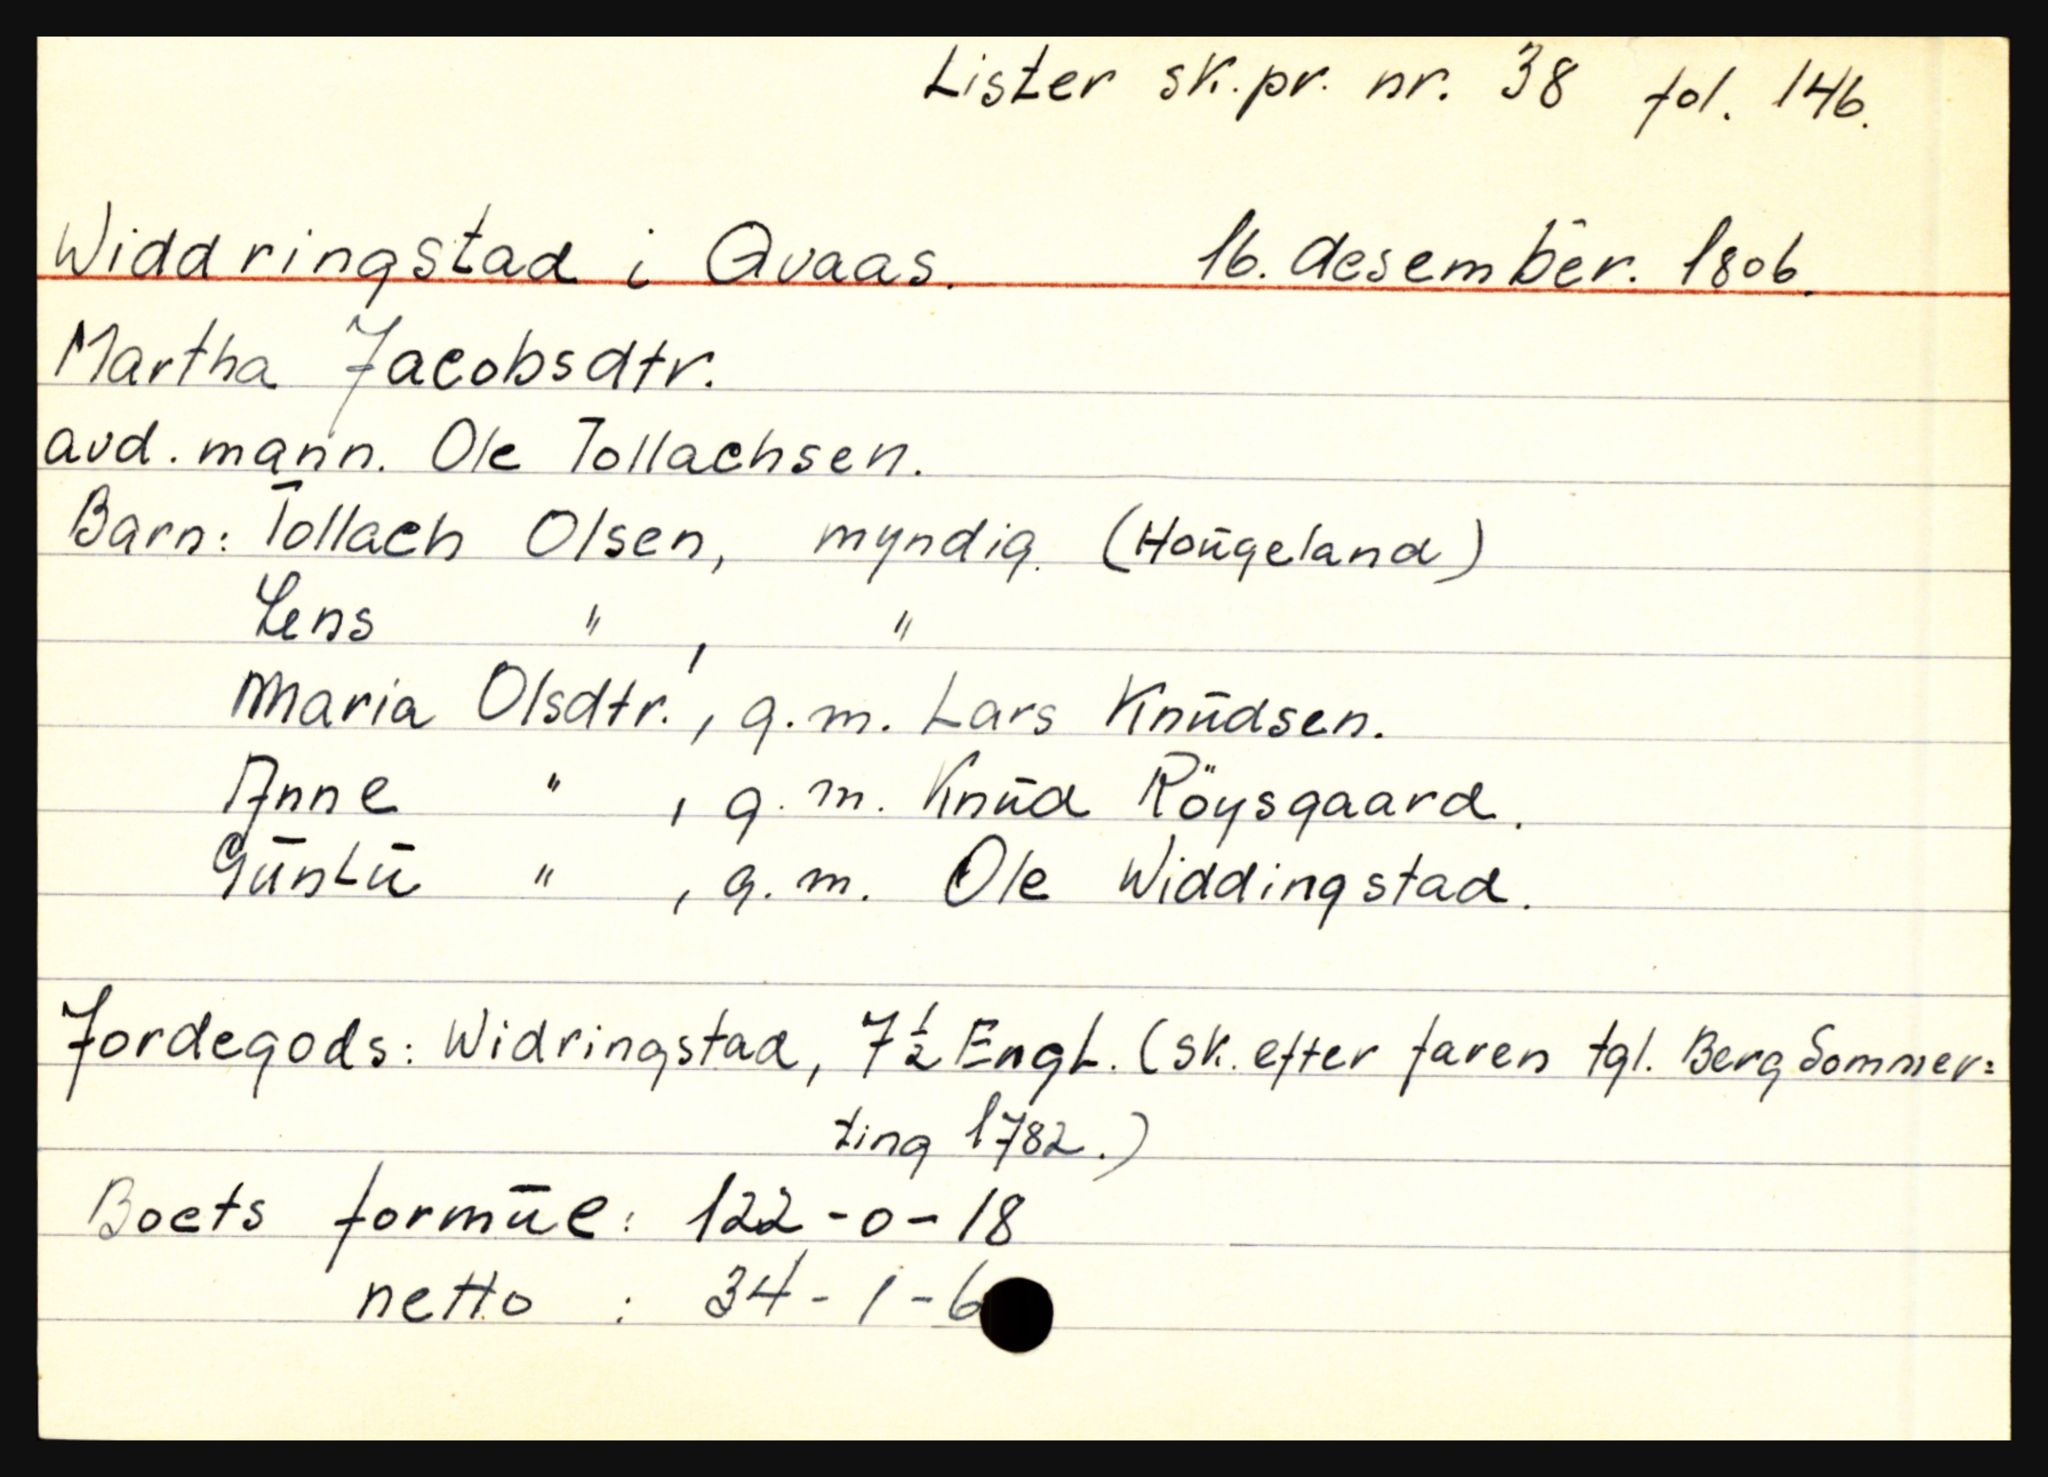 Lister sk.pr. nr. 38 fol. 146.
Widdringstad i Qvaas. 16. desember. 1806.
Martha Jacobsdtr.
avd. mann. Ole Tollachsen.
Barn: Tollach Olsen, myndig. (Hougeland)
Jens " , "
Maria Olsdtr., g.m. Lars Knudsen.
Anne " , g.m. Knud Röysgaard.
Guntu " , g.m. Ole Widdingstad.
Jordegods: Widringstad, 7½ Engl. (sk. efter faren tgl. Berg Sommer=
ting 1782.)
Boets formue: 122-0-18
netto : 34-1-6